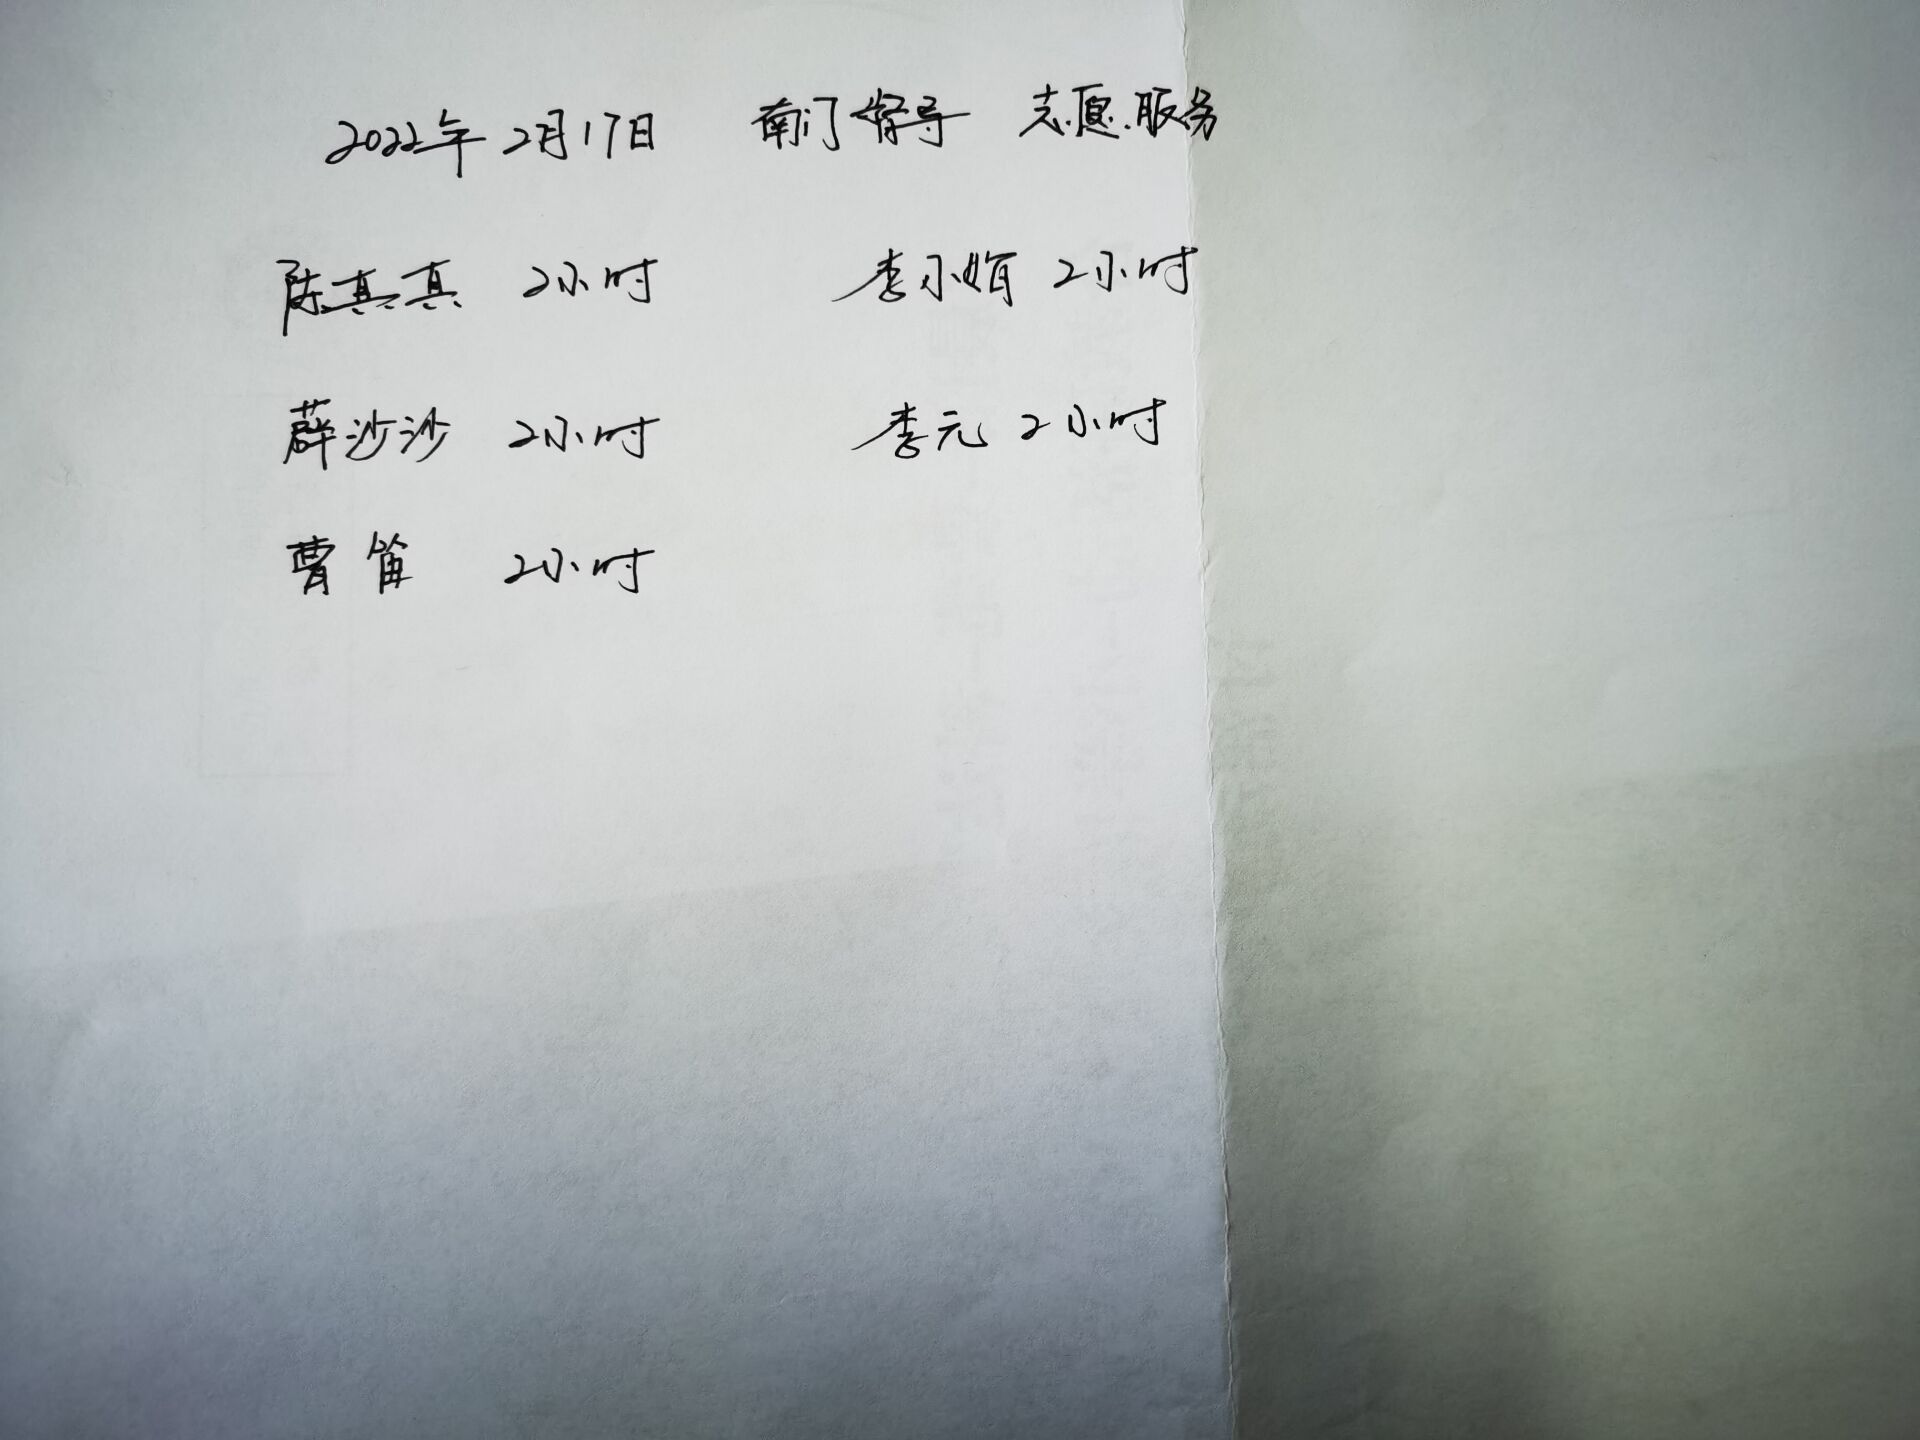 2022年2月17日 南门督导 志愿服务
陈真真 2小时 李小娟 2小时
薛沙沙 2小时 李元 2小时
曹笛 2小时